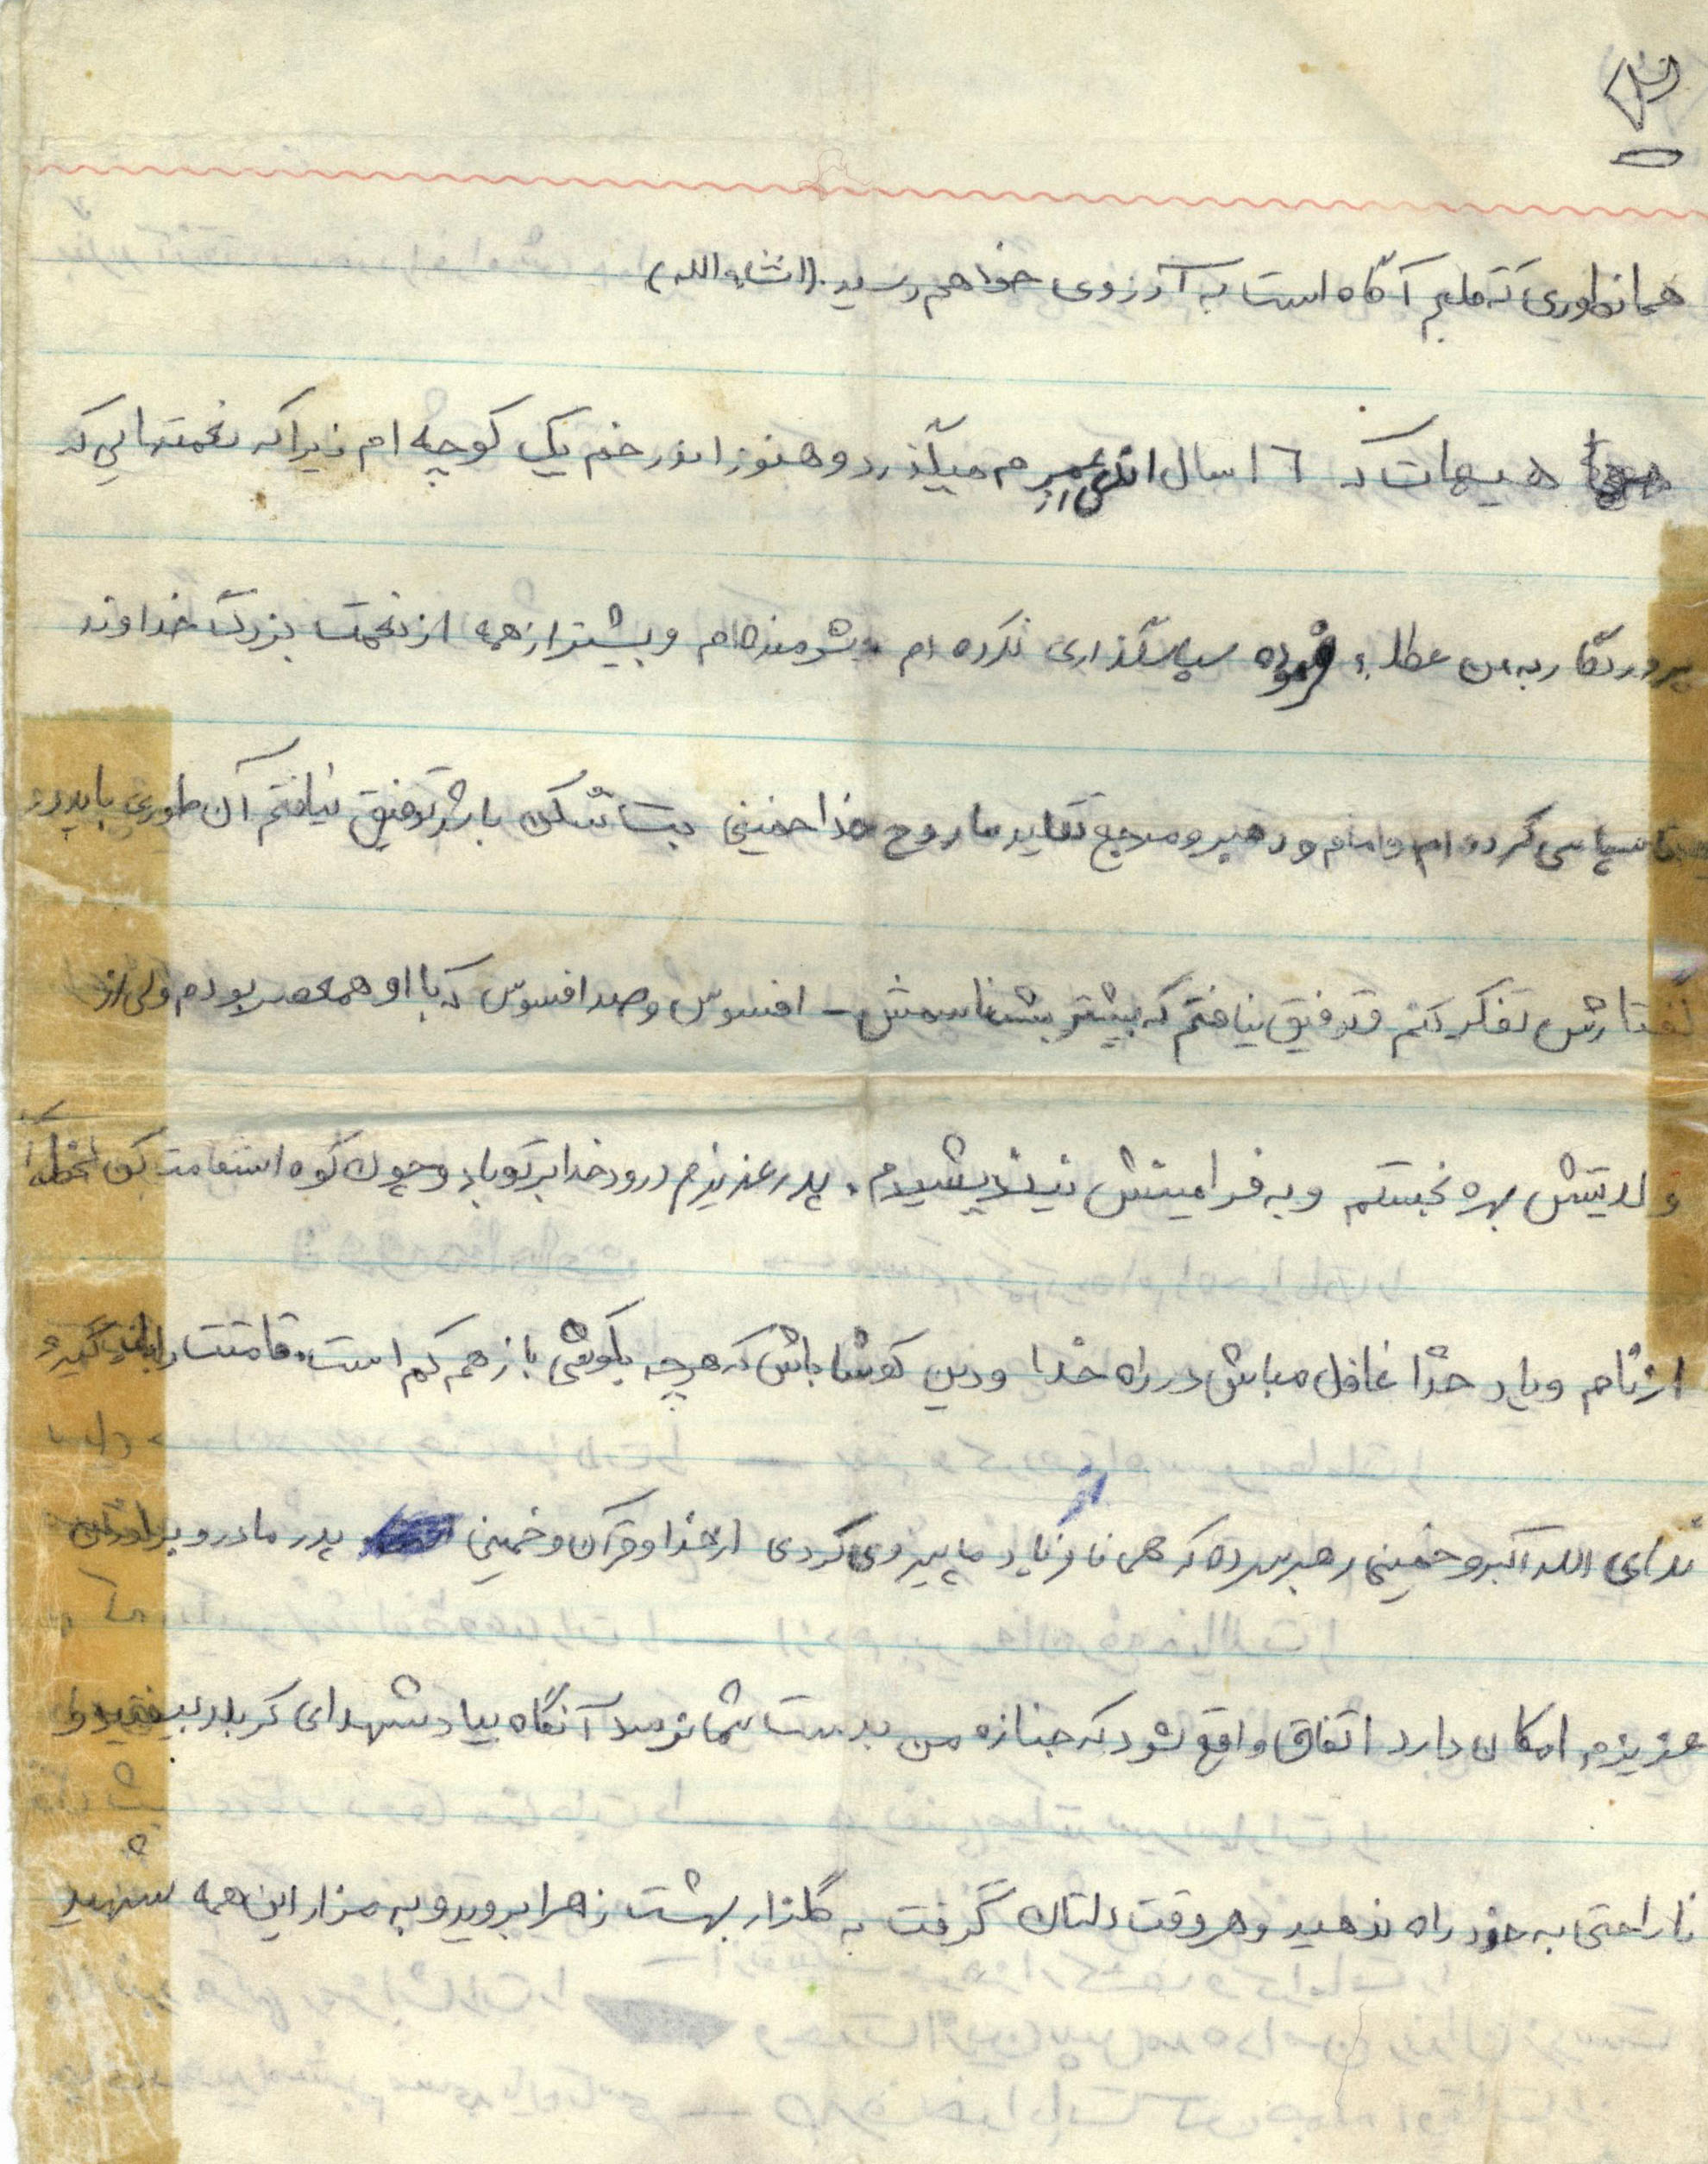 همانطوری که قلبم آگاه است به آرزوی خواهم رسید. (انشاء الله)
هیهات که ۱۶ سال از عمرم میگذرد و هنوز اندر خم یک کوچه ام زیرا که نعمتهایی که
پروردگار به من عطاء فرموده سپاسگذاری نکرده ام و شرمنده ام و بیشتر از همه از نعمت بزرگ خداوند
سپاسی کرده ام و امام و رهبر و مرجع تقلید ما روح خدا خمینی بت شکن باشد توفیق نیافتم آن طوری باید در
گفتارش تفکر کنم و توفیق نیافتم که بیشتر بشناسمش - افسوس و صد افسوس که با او همعصر بودم ولی از
ولایتش بهره نجستم و به فرامینش نیندیشیدم. پدر عزیزم درود خدا بر تو باد و چون کوه استقامت کن لحظه ای
از نام و یاد خدا غافل مباش در راه خدا و دین کوشا باش که هرچه بکوشی باز هم کم است. قامتت را گیر و
ندای الله اکبر و خمینی رهبر سرده که همانا از ما پیروی کردی از خدا و قرآن و خمینی پدر مادر و برادران
عزیزم امکان دارد اتفاق واقع شود که جنازه من بدست شما نرسد آنگاه بیاد شهدای کربلا بیفتید و
ناراحتی به خود راه ندهید و هر وقت دلتان گرفت به گلزار بهشت زهرا بروید و به مزار این همه شهید